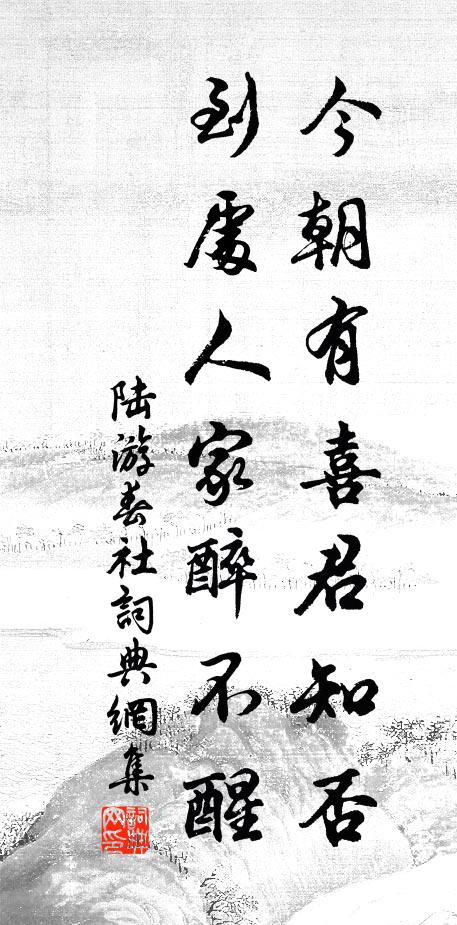 今朝有喜君知否
到處人家醉不醒
陸游春社詞典網集